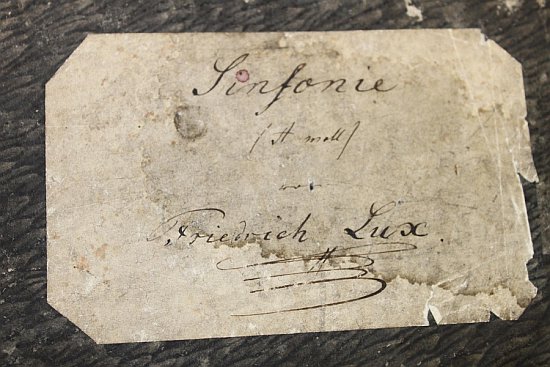 Sinfonie
/ H moll /
von
Friedrich Lux.